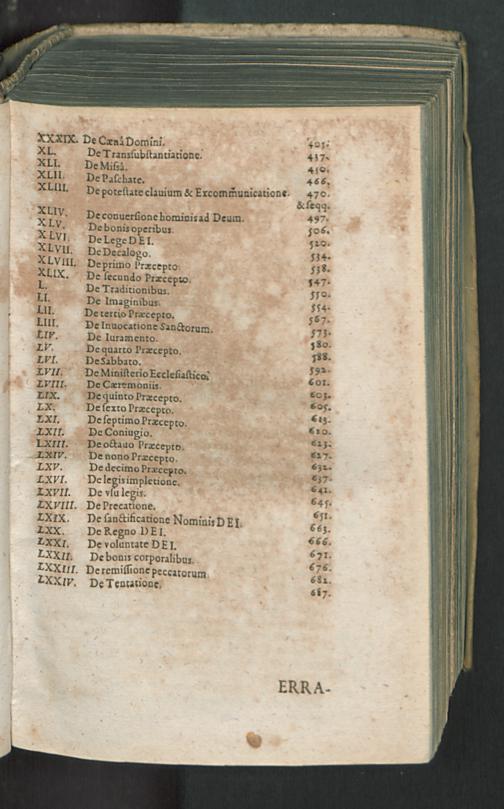 XXXIX. De Cænâ Domini. 405.
XL. De Transsubstantiatione. 437.
XLI. De Missâ. 450.
XLII. De Paschate. 466.
XLIII. De potestate clauium & Excommunicatione. 470.
& seqq.
XLIV. De conuersione hominis ad Deum. 497.
XLV. De bonis operibus. 506.
XLVI. De Lege DEI. 520.
XLVII. De Decalogo. 534.
XLVIII. De primo Præcepto. 538.
XLIX. De secundo Præcepto. 547.
L. De Traditionibus. 550.
LI. De Imaginibus. 554.
LII. De tertio Præcepto. 567.
LIII. De Inuocatione Sanctorum. 573.
LIV. De Iuramento. 580.
LV. De quarto Præcepto. 588.
LVI. De Sabbato. 592.
LVII. De Ministerio Ecclesiastico. 601.
LVIII. De Cæremoniis. 603.
LIX. De quinto Præcepto. 605.
LX. De sexto Præcepto. 613.
LXI. De septimo Præcepto. 620.
LXII. De Coniugio. 623.
LXIII. De octauo Præcepto. 627.
LXIV. De nono Præcepto. 632.
LXV. De decimo Præcepto. 637.
LXVI. De legis impletione. 641.
LXVII. De vsu legis. 645.
LXVIII. De Precatione. 651.
LXIX. De sanctificatione Nominis DEI. 663.
LXX. De Regno DEI. 666.
LXXI. De voluntate DEI. 671.
LXXII. De bonis corporalibus. 676.
LXXIII. De remissione peccatorum 682.
LXXIV. De Tentatione. 687.
ERRA-